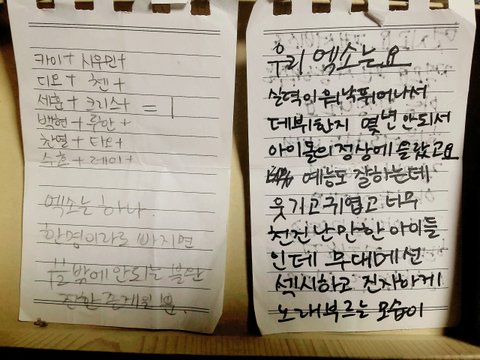 카이+ 시우민+
디오+ 첸+
세훈+ 크리스+ = 1
백현+ 루한+
찬열+ 타오+
수호+ 레이+
엑소는 하나
한명이라로 빠지면
밖에 안되는 불안
우리 엑소는요
실력이 워낙 뛰어나서
데뷔한지 몇년 안되서
아이돌의 정상에 올랐고요
예능도 잘하는데
웃기고 귀엽고 너무
천진난만한 아이들
인데 무대에선
섹시하고 진지하게
노래부르는 모습이